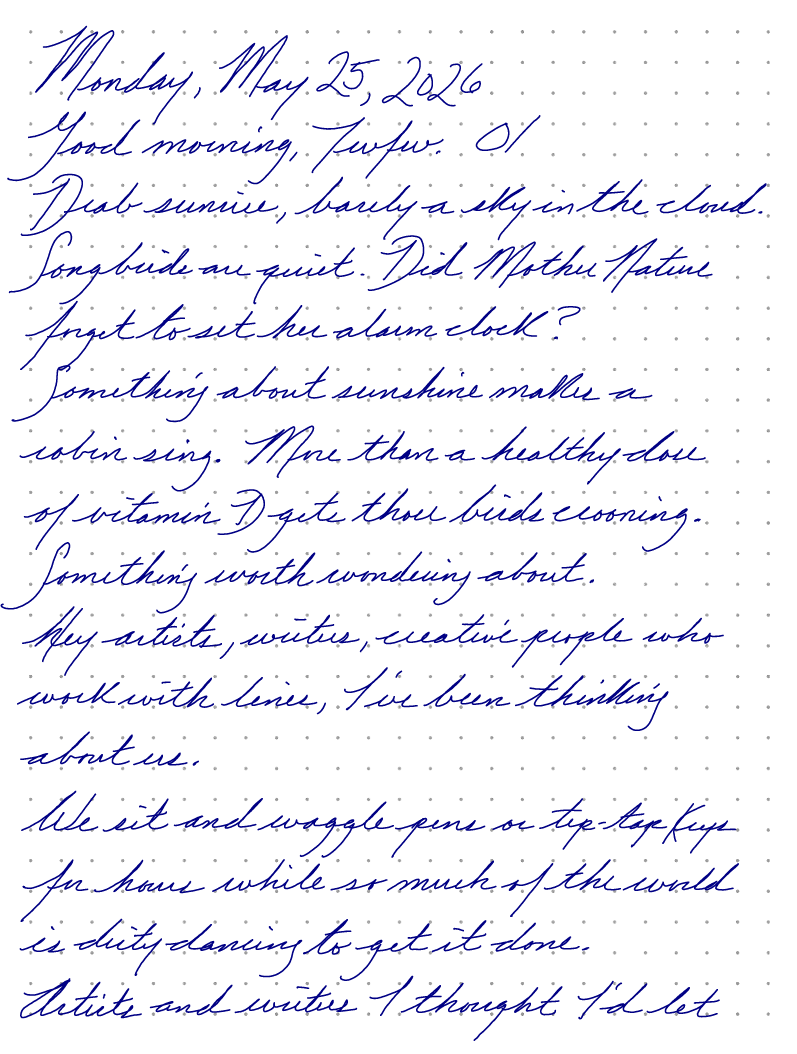 Monday, May 25, 2026
Good morning, Twfw. 01
Drab sunrise, barely a sky in the cloud.
Songbirds are quiet. Did Mother Nature
forget to set her alarm clock?
Something about sunshine makes a
robin sing. More than a healthy dose
of vitamin D gets those birds crooning.
Something worth wondering about.
Hey artists, writers, creative people who
work with lines, I've been thinking
about us.
We sit and waggle pens or tip-tap keys
for hours while so much of the world
is dirty dancing to get it done.
Artists and writers I thought I'd let